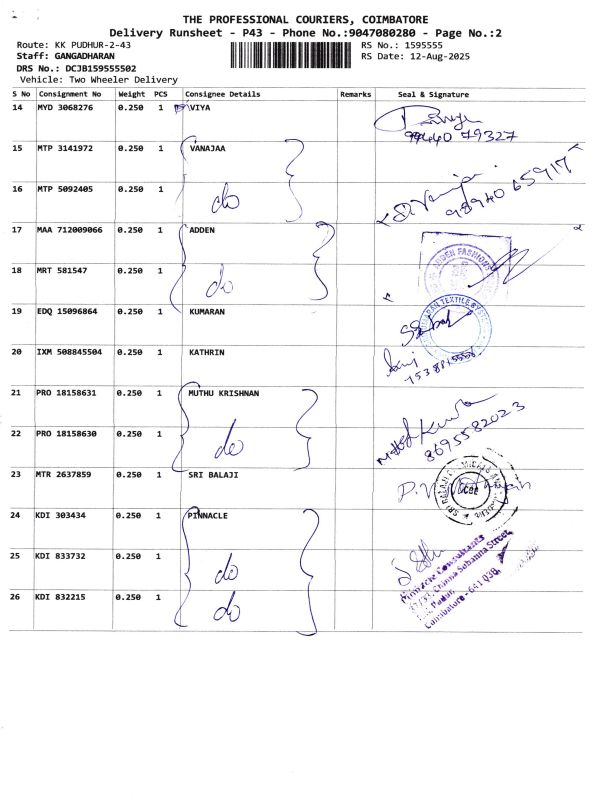 THE PROFESSIONAL COURIERS, COIMBATORE
Delivery Runsheet - P43 - Phone No.:9047080280 - Page No.:2
Route: KK PUDHUR-2-43 RS No.: 1595555
Staff: GANGADHARAN RS Date: 12-Aug-2025
DRS No.: DCJB159555502
Vehicle: Two Wheeler Delivery
S No Consignment No Weight PCS Consignee Details Remarks Seal & Signature
14 MYD 3068276 0.250 1 VIYA
99440 79327
15 MTP 3141972 0.250 1 VANAJAA
16 MTP 5092405 0.250 1 do
98940 65917
17 MAA 712009066 0.250 1 ADDEN
18 MRT 581547 0.250 1 do
19 EDQ 15096864 0.250 1 KUMARAN
20 IXM 508845504 0.250 1 KATHRIN
21 PRO 18158631 0.250 1 MUTHU KRISHNAN
22 PRO 18158630 0.250 1 do
8695582023
23 MTR 2637859 0.250 1 SRI BALAJI
24 KDI 303434 0.250 1 PINNACLE
25 KDI 833732 0.250 1 do
Pinnacle Consultants
26 KDI 832215 0.250 1 do
Coimbatore - 641 038